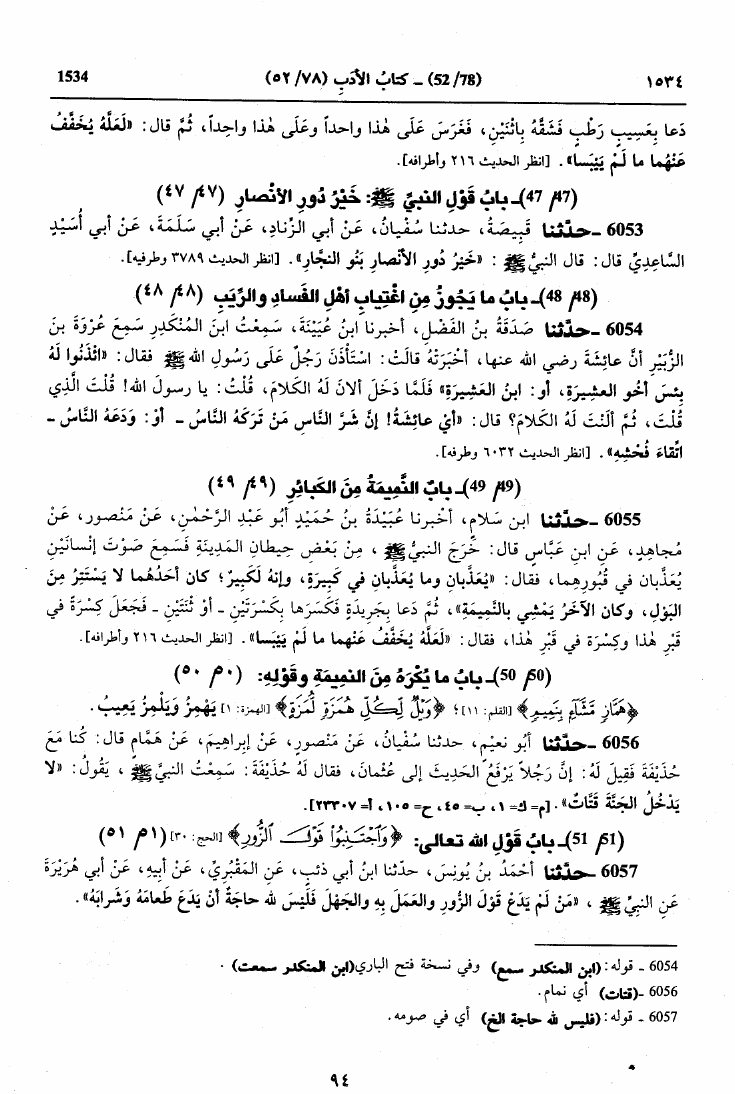 1534 (52/78) ـ كتابُ الأدَبِ (٥٢/٧٨) ١٥٣٤
دَعا بِعَسِيبٍ رَطْبٍ فَشَقَّهُ بِاثْنَيْنِ، فَغَرَسَ عَلَى هٰذا واحداً وعَلَى هٰذا واحِداً، ثُمَّ قال: «لَعَلَّهُ يُخَفَّفُ
عَنْهُما ما لَمْ يَيْبَسا». [انظر الحديث ٢١٦ وأطرافه].
(47م/47)ـ بابُ قَوْلِ النبيِّ ﷺ: خَيْرُ دُورِ الأنْصارِ (٤٧م/٤٧)
6053 ـ حدَّثنا قَبِيصَةُ، حدثنا سُفْيانُ، عَنْ أبي الزِّنادِ، عَنْ أبي سَلَمَةَ، عَنْ أبي أُسَيْدٍ
السَّاعِدِيِّ قال: قال النبيُّ ﷺ : «خَيْرُ دُورِ الأنْصارِ بَنُو النجَّارِ». [انظر الحديث ٣٧٨٩ وطرفيه].
(48م/48)ـ بابُ ما يَجُوزُ مِنِ اغْتِيابِ أهْلِ الفَسادِ والرِّيَبِ (٤٨م/٤٨)
6054 ـ حدَّثنا صَدَقَةُ بنُ الفَضْلِ، أخبرنا ابنُ عُيَيْنَةَ، سَمِعْتُ ابنَ المُنْكَدِرِ سَمِعَ عُرْوَةَ بنَ
الزُّبَيْرِ أنَّ عائِشَةَ رضي الله عنها، أخْبَرَتْهُ قالَتْ: اسْتَأْذَنَ رَجُلٌ عَلَى رَسُولِ الله ﷺ فقال: «ائْذَنُوا لَهُ
بِئْسَ أخُو العشِيرَةِ، أو: ابنُ العَشِيرَةِ» فَلَمَّا دَخَلَ ألانَ لَهُ الكَلامَ، قُلْتُ: يا رسولَ الله! قُلْتَ الَّذِي
قُلْتَ، ثُمَّ ألَنْتَ لَهُ الكَلامَ؟ قال: «أيْ عائِشَةُ! إنَّ شَرَّ النَّاسِ مَنْ تَرَكَهُ النَّاسُ ـ أوْ: وَدَعَهُ النَّاسُ ـ
اتِّقاءَ فُحْشِهِ». [انظر الحديث ٦٠٣٢ وطرفه].
(49م/49)ـ بابٌ النَّمِيمَةُ مِنَ الكَبائِرِ (٤٩م/٤٩)
6055 ـ حدَّثنا ابن سَلام، أخْبرنا عُبَيْدَةُ بنُ حُمَيْدٍ أبُو عَبْدِ الرَّحْمٰنِ، عَنْ مَنْصورٍ، عَنْ
مُجاهِدٍ، عَنِ ابنِ عَبَّاسٍ قال: خَرَجَ النبيُّ ﷺ ، مِنْ بَعْضِ حِيطانِ المَدِينَةِ فَسَمِعَ صَوْتَ إنْسانَيْنِ
يُعَذَّبانِ في قُبُورِهِما، فقال: «يُعَذَّبانِ وما يُعَذَّبانِ في كَبِيرَةٍ، وإنهُ لَكَبِيرٌ؛ كان أحَدُهُما لا يَسْتَتِرُ مِنَ
البَوْلِ، وكان الآخَرُ يَمْشِي بالنَّمِيمَةِ»، ثُمَّ دَعا بِجَرِيدَةٍ فَكَسَرَها بِكِسْرَتَيْنِ ـ أوْ ثْنَتَيْنِ ـ فَجَعَلَ كِسْرَةً في
قَبْرِ هٰذا وكِسْرَة في قَبْرِ هٰذا، فقال: «لَعَلَّهُ يُخَفَّفُ عَنْهُما ما لَمْ يَيْبَسا». [انظر الحديث ٢١٦ وأطرافه].
(50م/50)ـ بابُ ما يُكْرَهُ مِنَ النمِيمَةِ وقَوْلِهِ: (٥٠م/٥٠)
﴿هَمَّازٍ مَّشَّاءٍ بِنَمِيمٍ﴾ [القلم: ١١]؛ ﴿وَيْلٌ لِّكُلِّ هُمَزَةٍ لُّمَزَةٍ﴾ [الهمزة: ١] يَهْمِزُ وَيَلْمِزُ يَعِيبُ.
6056 ـ حدَّثنا أبُو نعيْمٍ، حدثنا سُفْيانُ، عَنْ مَنْصورٍ، عَنْ إبراهِيمَ، عَنْ هَمَّامٍ قال: كُنا مَعَ
حُذَيْفَةَ فَقِيلَ لَهُ: إنَّ رَجُلاً يَرْفَعُ الحَدِيثَ إلى عُثْمانَ، فقال لَهُ حُذَيْفَةُ: سَمِعْتُ النبيَّ ﷺ ، يَقُولُ: «لا
يَدْخُلُ الجَنَّةَ قَتَّاتٌ». [م= ك= ١، ب= ٤٥، ح= ١٠٥، أ= ٢٣٣٠٧].
(51م/51)ـ بابُ قَوْلِ الله تعالى: ﴿وَاجْتَنِبُوا قَوْلَ الزُّورِ﴾ [الحج: ٣٠] (٥١م/٥١)
6057 ـ حدَّثنا أحْمَدُ بنُ يُونسَ، حدّثنا ابنُ أبي ذئبٍ، عَنِ المَقْبُرِيِّ، عَنْ أبِيهِ، عَنْ أبي هُرَيْرَةَ
عَنِ النبيِّ ﷺ ، «مَنْ لَمْ يَدَعْ قَوْلَ الزُّورِ والعَمَلَ بِهِ والجَهْلَ فَلَيْسَ لله حاجَةٌ أنْ يَدَعَ طَعامَهُ وشَرابَهُ».
6054 ـ قوله: (ابن المنكدر سمع) وفي نسخة فتح الباري(ابن المنكدر سمعت) .
6056 ـ(قتات) أي نمام.
6057 ـ قوله: (فليس لله حاجة الخ) أي في صومه.
٩٤